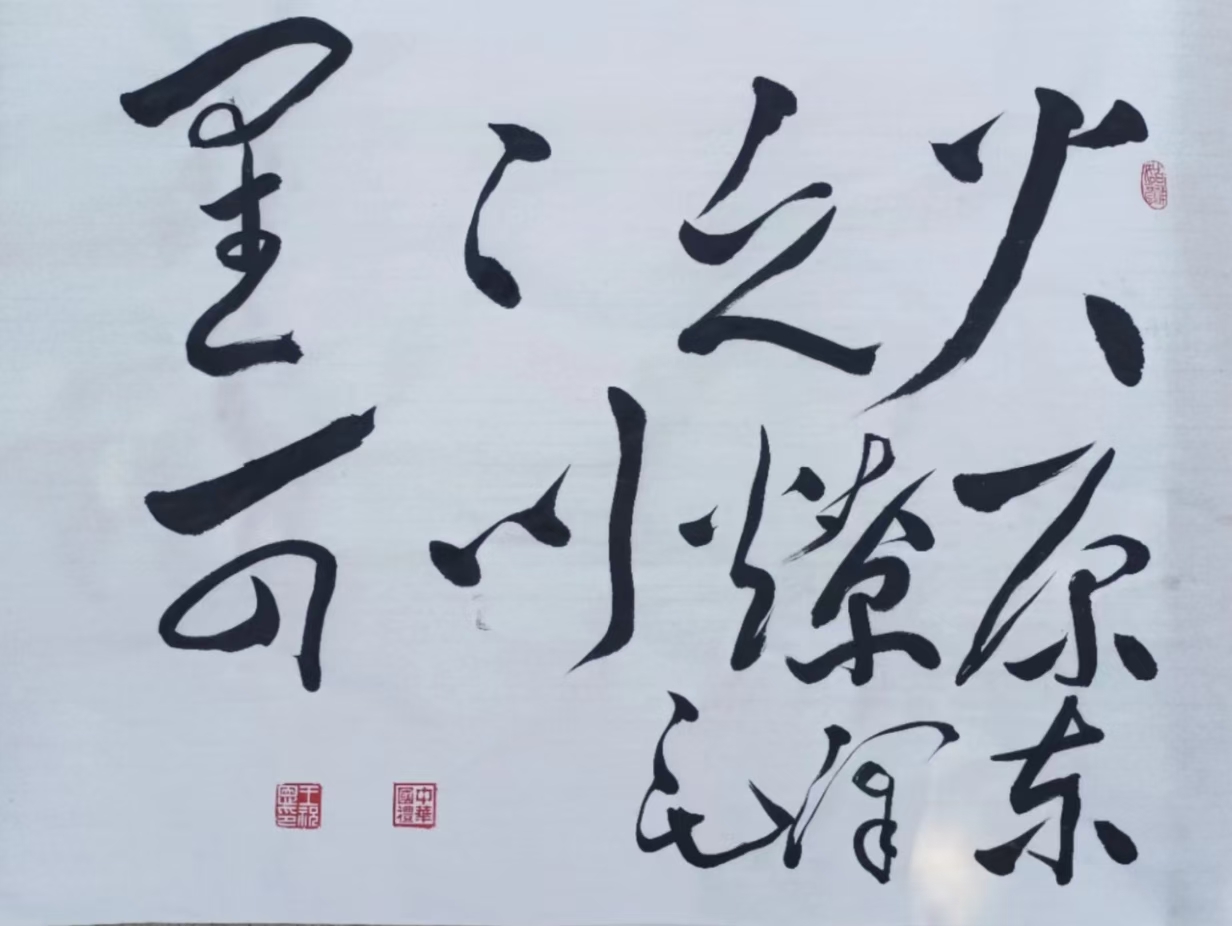 星々之火
可以燎原
毛泽东
中華國禮